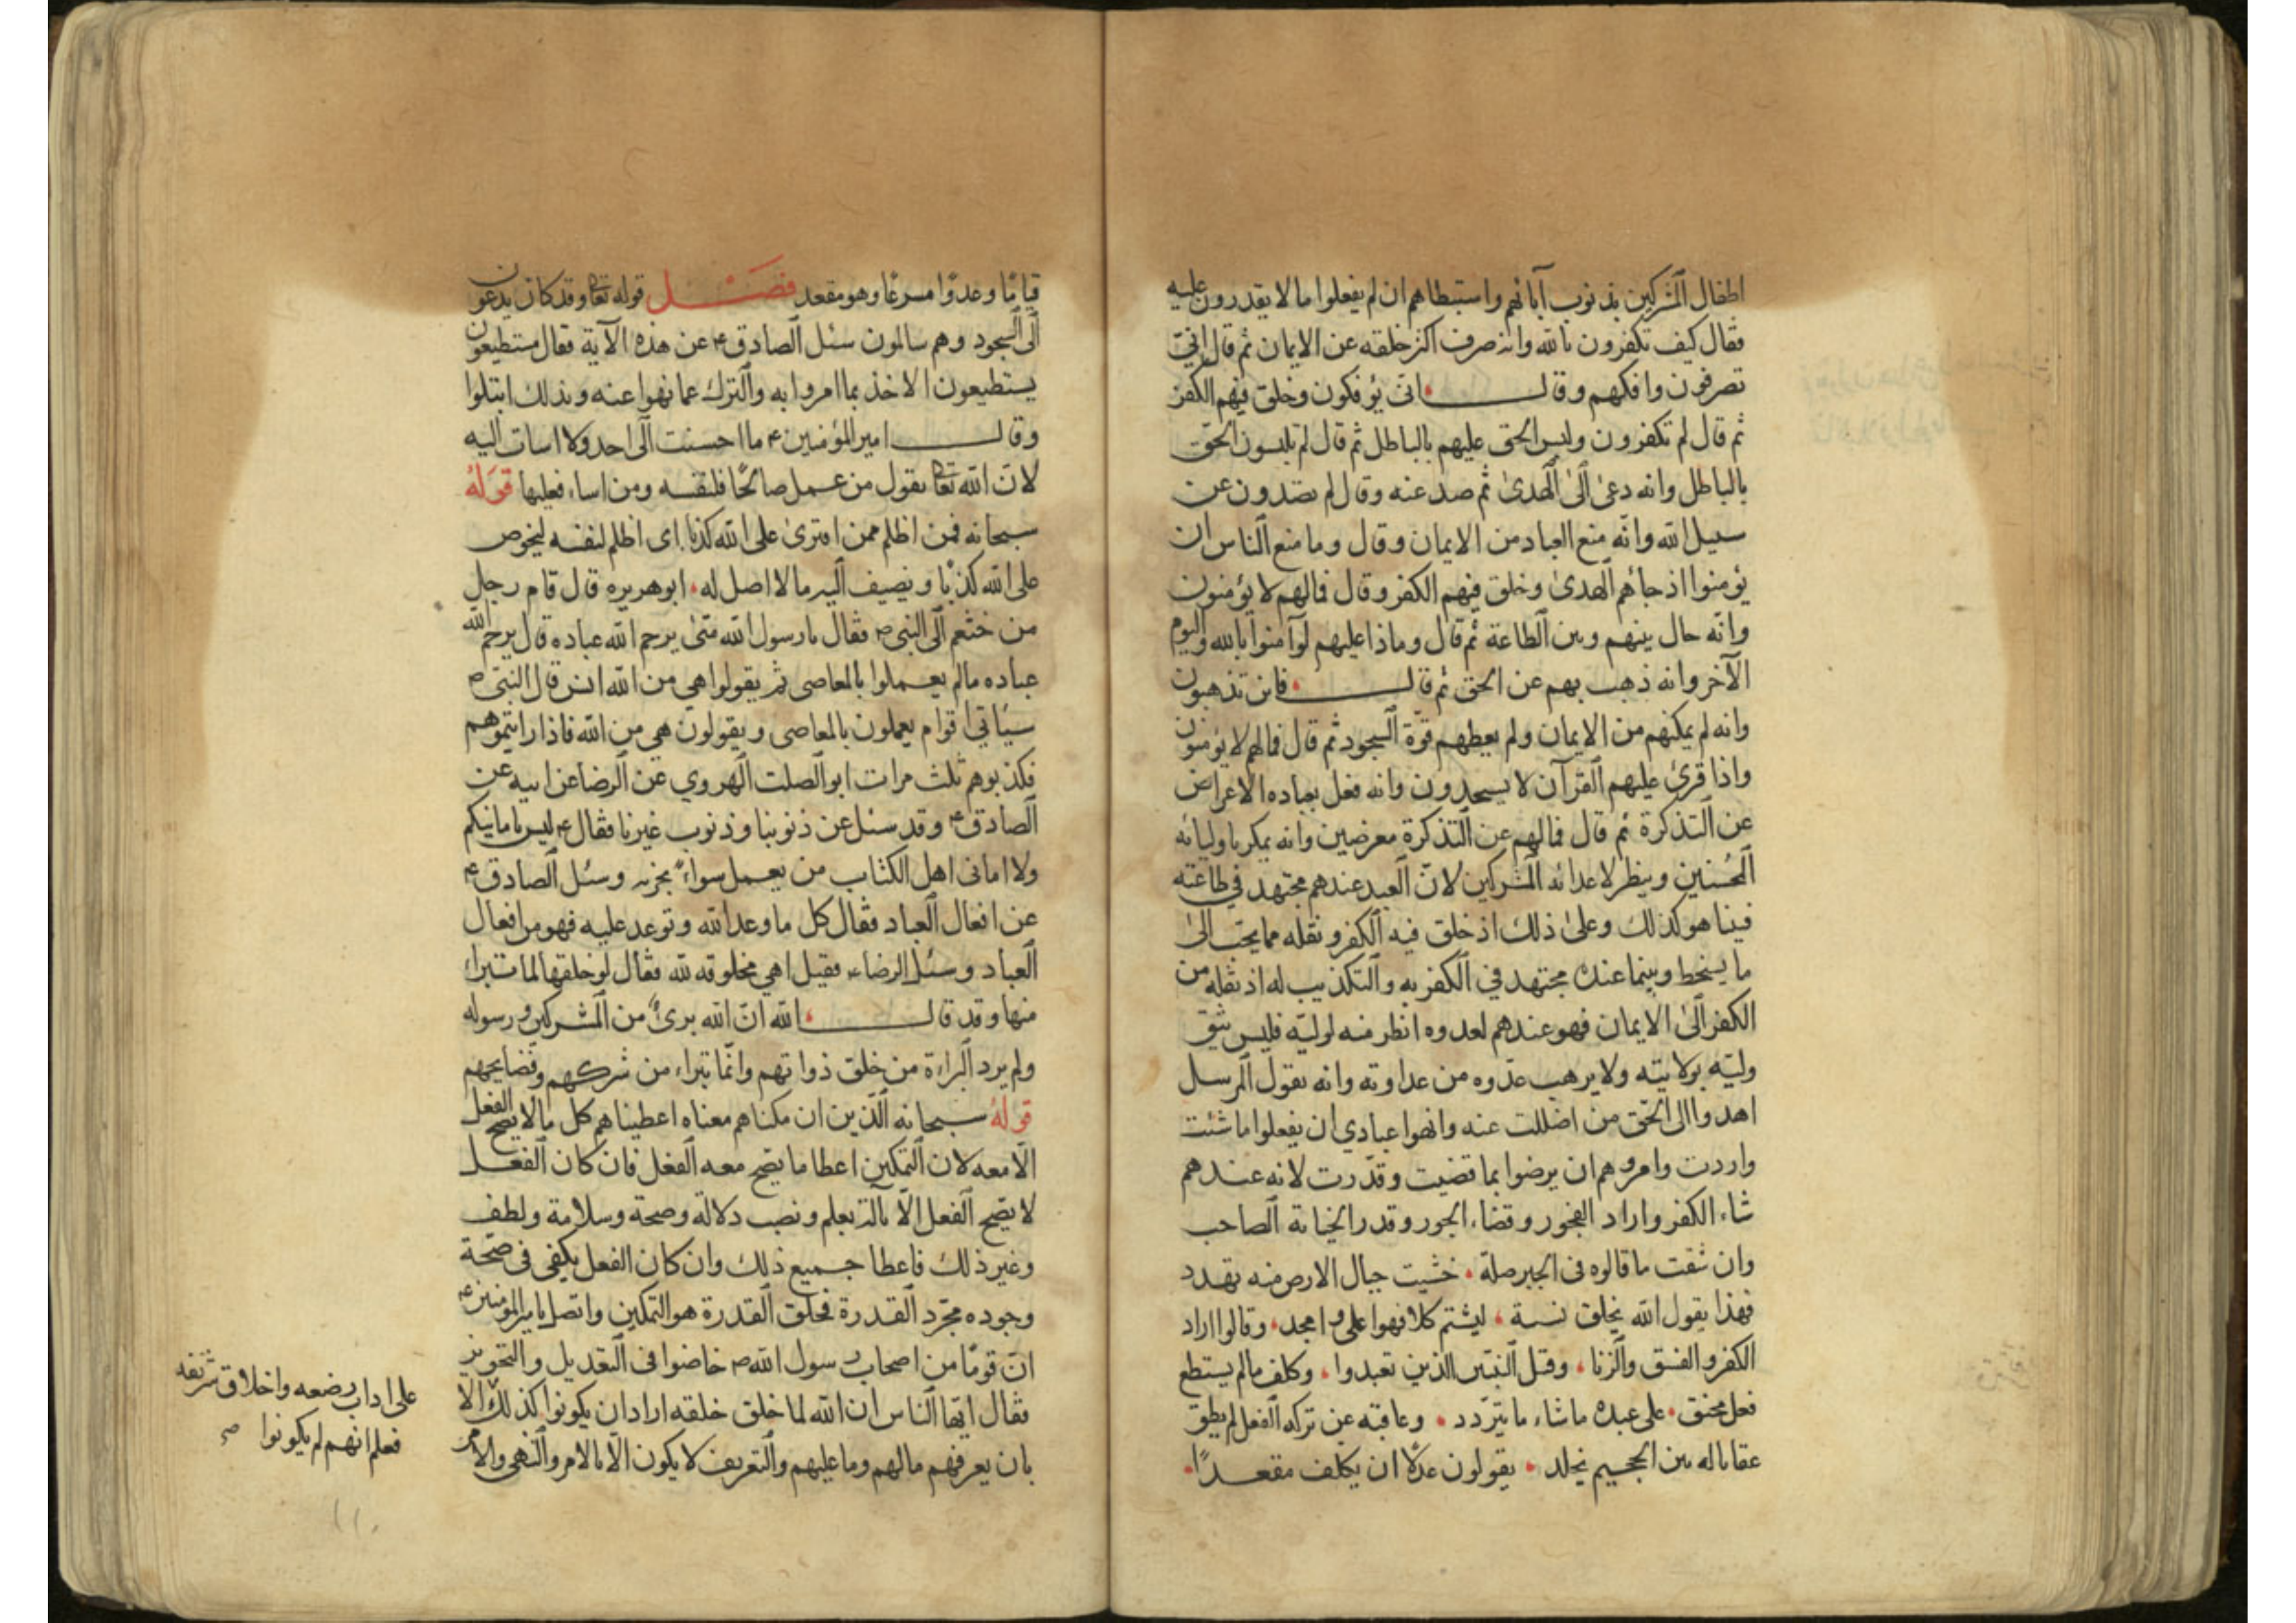 اطفال المشركين بذنوب آبائهم واستبطاهم ان لم يفعلوا ما لا يقدرون عليه
فقال كيف تكفرون بالله وانه صرف اكثر خلقه عن الايمان ثم قال انى
تصرفون وافكهم وقال انى يؤفكون وخلق فيهم الكفر
ثم قال لم تكفرون ولبس الحق عليهم بالباطل ثم قال لم تلبسون الحق
بالباطل وانه دعى الى الهدى ثم صد عنه وقال لم تصدون عن
سبيل الله وانه منع العباد من الايمان وقال وما منع الناس ان
يؤمنوا اذ جائهم الهدى وخلق فيهم الكفر وقال فمالهم لا يؤمنون
وانه حال بينهم وبين الطاعة ثم قال وماذا عليهم لو آمنوا بالله واليوم
الآخر وانه ذهب بهم عن الحق ثم قال فاين تذهبون
وانه لم يمكنهم من الايمان ولم يعطهم قوة السجود ثم قال فمالهم لا يؤمنون
واذا قرئ عليهم القرآن لا يسجدون وانه فعل بعباده الاعراض
عن التذكرة ثم قال فمالهم عن التذكرة معرضين وانه يمكر باوليائه
المحسنين وينظر لاعدائه المشركين لان العبد عندهم مجتهد في طاعته
فبينا هو كذلك وعلى ذلك اذ خلق فيه الكفر ونقله مما يحب الى
ما يسخط وبينما عنده مجتهد في الكفر به والتكذيب له اذ نقله من
الكفر الى الايمان فهو عندهم لعدوه انظر منه لوليه فليس يثق
وليه بولايته ولا يرهب عدوه من عداوته وانه يقول للرسل
اهدوا الى الحق من اضللت عنه وانهوا عبادي ان يفعلوا ما شئت
واردت وامروهم ان يرضوا بما قضيت وقدرت لانه عندهم
شاء الكفر واراد الفجور وقضاء الجور وقدر الخيانة الصاحب
وان شقت ما قالوه فى الجبر صلة خشيت جبال الارض منه تهدد
فهذا يقول الله يخلق نسبة ليشتم كلا فهوا على وامجد وقالوا اراد
الكفر والفسق والزنا وقتل النبيين الذين تعبدوا وكلف مالم يستطع
فعل محنق على عبده ما شاء ما يتردد وعاقبه عن تركه الفعل لم يطق
عقابا له بين الجحيم يخلد يقولون عدلا ان يكلف مقعدا
قياما وعدوا مسرعا وهو مقعد فصل قوله تعا وقد كان يدعون
الى السجود وهم سالمون سئل الصادق ع عن هذه الآية فقال مستطيعون
يستطيعون الاخذ بما امروا به والترك عما نهوا عنه وبذلك ابتلوا
وقال امير المؤمنين ع ما احسنت الى احد ولا اسات اليه
لان الله تعا يقول من عمل صالحا فلنفسه ومن اساء فعليها قوله
سبحانه فمن اظلم ممن افترى على الله كذبا اى اظلم لنفسه ليخوص
على الله كذبا ويضيف اليه مالا اصل له ابو هريره قال قام رجل
من خثعم الى النبى ص فقال يا رسول الله متى يرحم الله عباده قال يرحم الله
عباده مالم يعملوا بالمعاصى ثم يقولوا هي من الله انس قال النبى ص
سيأتي اقوام يعملون بالمعاصى ويقولون هى من الله فاذا رايتموهم
فكذبوهم ثلث مرات ابو الصلت الهروي عن الرضا عن ابيه عن
الصادق ع وقد سئل عن ذنوبنا وذنوب غيرنا فقال ع ليس بامانيكم
ولا امانى اهل الكتاب من يعمل سواء يجز به وسئل الصادق ع
عن افعال العباد فقال كل ما وعد الله وتوعد عليه فهو من افعال
العباد وسئل الرضاء فقيل اهي مخلوقه لله فقال لو خلقها لما تبراء
منها وقد قال الله ان الله برئ من المشركين ورسوله
ولم يرد البراءة من خلق ذواتهم وانما تبراء من شركهم وفضايحهم
قوله سبحانه الذين ان مكناهم معناه اعطيناهم كل مالا يصح الفعل
الا معه لان التمكين اعطا ما يصح معه الفعل فان كان الفعل
لا يصح الفعل الا بآلة بعلم ونصب دلالة وصحة وسلامة ولطف
وغير ذلك فاعطا جميع ذلك وان كان الفعل يكفى فى صحة
وجوده مجرد القدرة فخلق القدرة هو التمكين واتصل بامير المؤمنين ع
ان قوما من اصحاب رسول الله ص خاضوا فى التعديل والتجوير
فقال ايها الناس ان الله لما خلق خلقه اراد ان يكونوا كذلك الا
بان يعرفهم مالهم وما عليهم والتعريف لا يكون الا بالامر والنهى والامر
على اداب رضعه واخلاق شريفه
فعلم انهم لم يكونوا صح